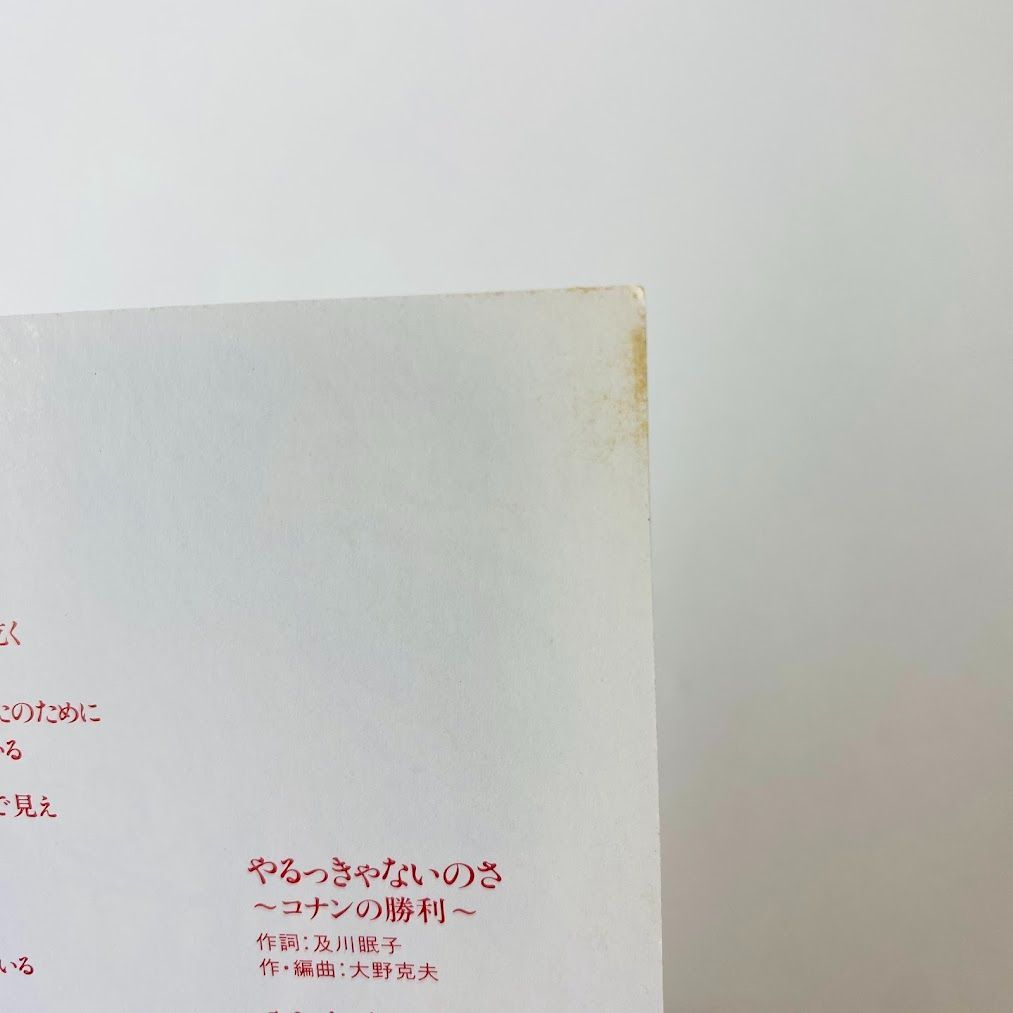 く
のために
いる
で見え
いる
やるっきゃないのさ
～コナンの勝利～
作詞：及川眠子
作・編曲：大野克夫